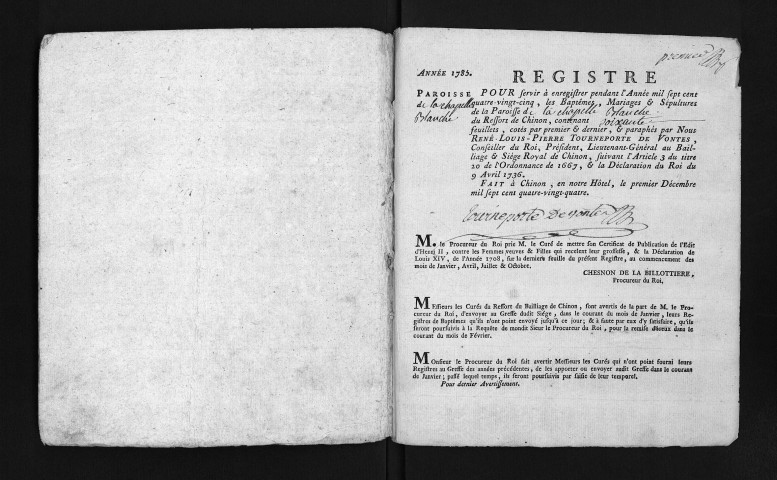 premier
ANNÉE 1785.
REGISTRE
PAROISSE
de la chapelle
Blanche
POUR servir à enregistrer pendant l'Année mil sept cent
quatre-vingt-cinq, les Baptêmes, Mariages & Sépultures
de la Paroisse de la chapelle Blanche
du Ressort de Chinon, contenant soixante
feuillets, cotés par premier & dernier, & paraphés par Nous
RENÉ-LOUIS-PIERRE TOURNEPORTE DE VONTES,
Conseiller du Roi, Président, Lieutenant-Général au Bail-
liage & Siége Royal de Chinon, suivant l'Article 3 du titre
20 de l'Ordonnance de 1667, & la Déclaration du Roi du
9 Avril 1736.
FAIT à Chinon, en notre Hôtel, le premier Décembre
mil sept cent quatre-vingt-quatre.
Tourneporte De Vontes
M. le Procureur du Roi prie M. le Curé de mettre son Certificat de Publication de l'Edit
d'Henri II, contre les Femmes veuves & Filles qui recelent leur grossesse, & la Déclaration de
Louis XIV, de l'Année 1708, sur la derniere feuille du présent Registre, au commencement des
mois de Janvier, Avril, Juillet & Octobre.
CHESNON DE LA BILLOTTIERE,
Procureur du Roi.
MEssieurs les Curés du Ressort du Bailliage de Chinon, sont avertis de la part de M. le Pro-
cureur du Roi, d'envoyer au Greffe dudit Siége, dans le courant du mois de Janvier, leurs Re-
gistres de Baptêmes qu'ils n'ont point envoyé jusqu'à ce jour; & à faute par eux d'y satisfaire, qu'ils
seront poursuivis à la Requête de mondit Sieur le Procureur du Roi, pour la remise d'iceux dans le
courant du mois de Février.
Monsieur le Procureur du Roi fait avertir Messieurs les Curés qui n'ont point fourni leurs
Registres au Greffe des années précédentes, de les apporter ou envoyer audit Greffe dans le courant
de Janvier; passé lequel temps, ils seront poursuivis par saisie de leur temporel.
Pour dernier Avertissement.